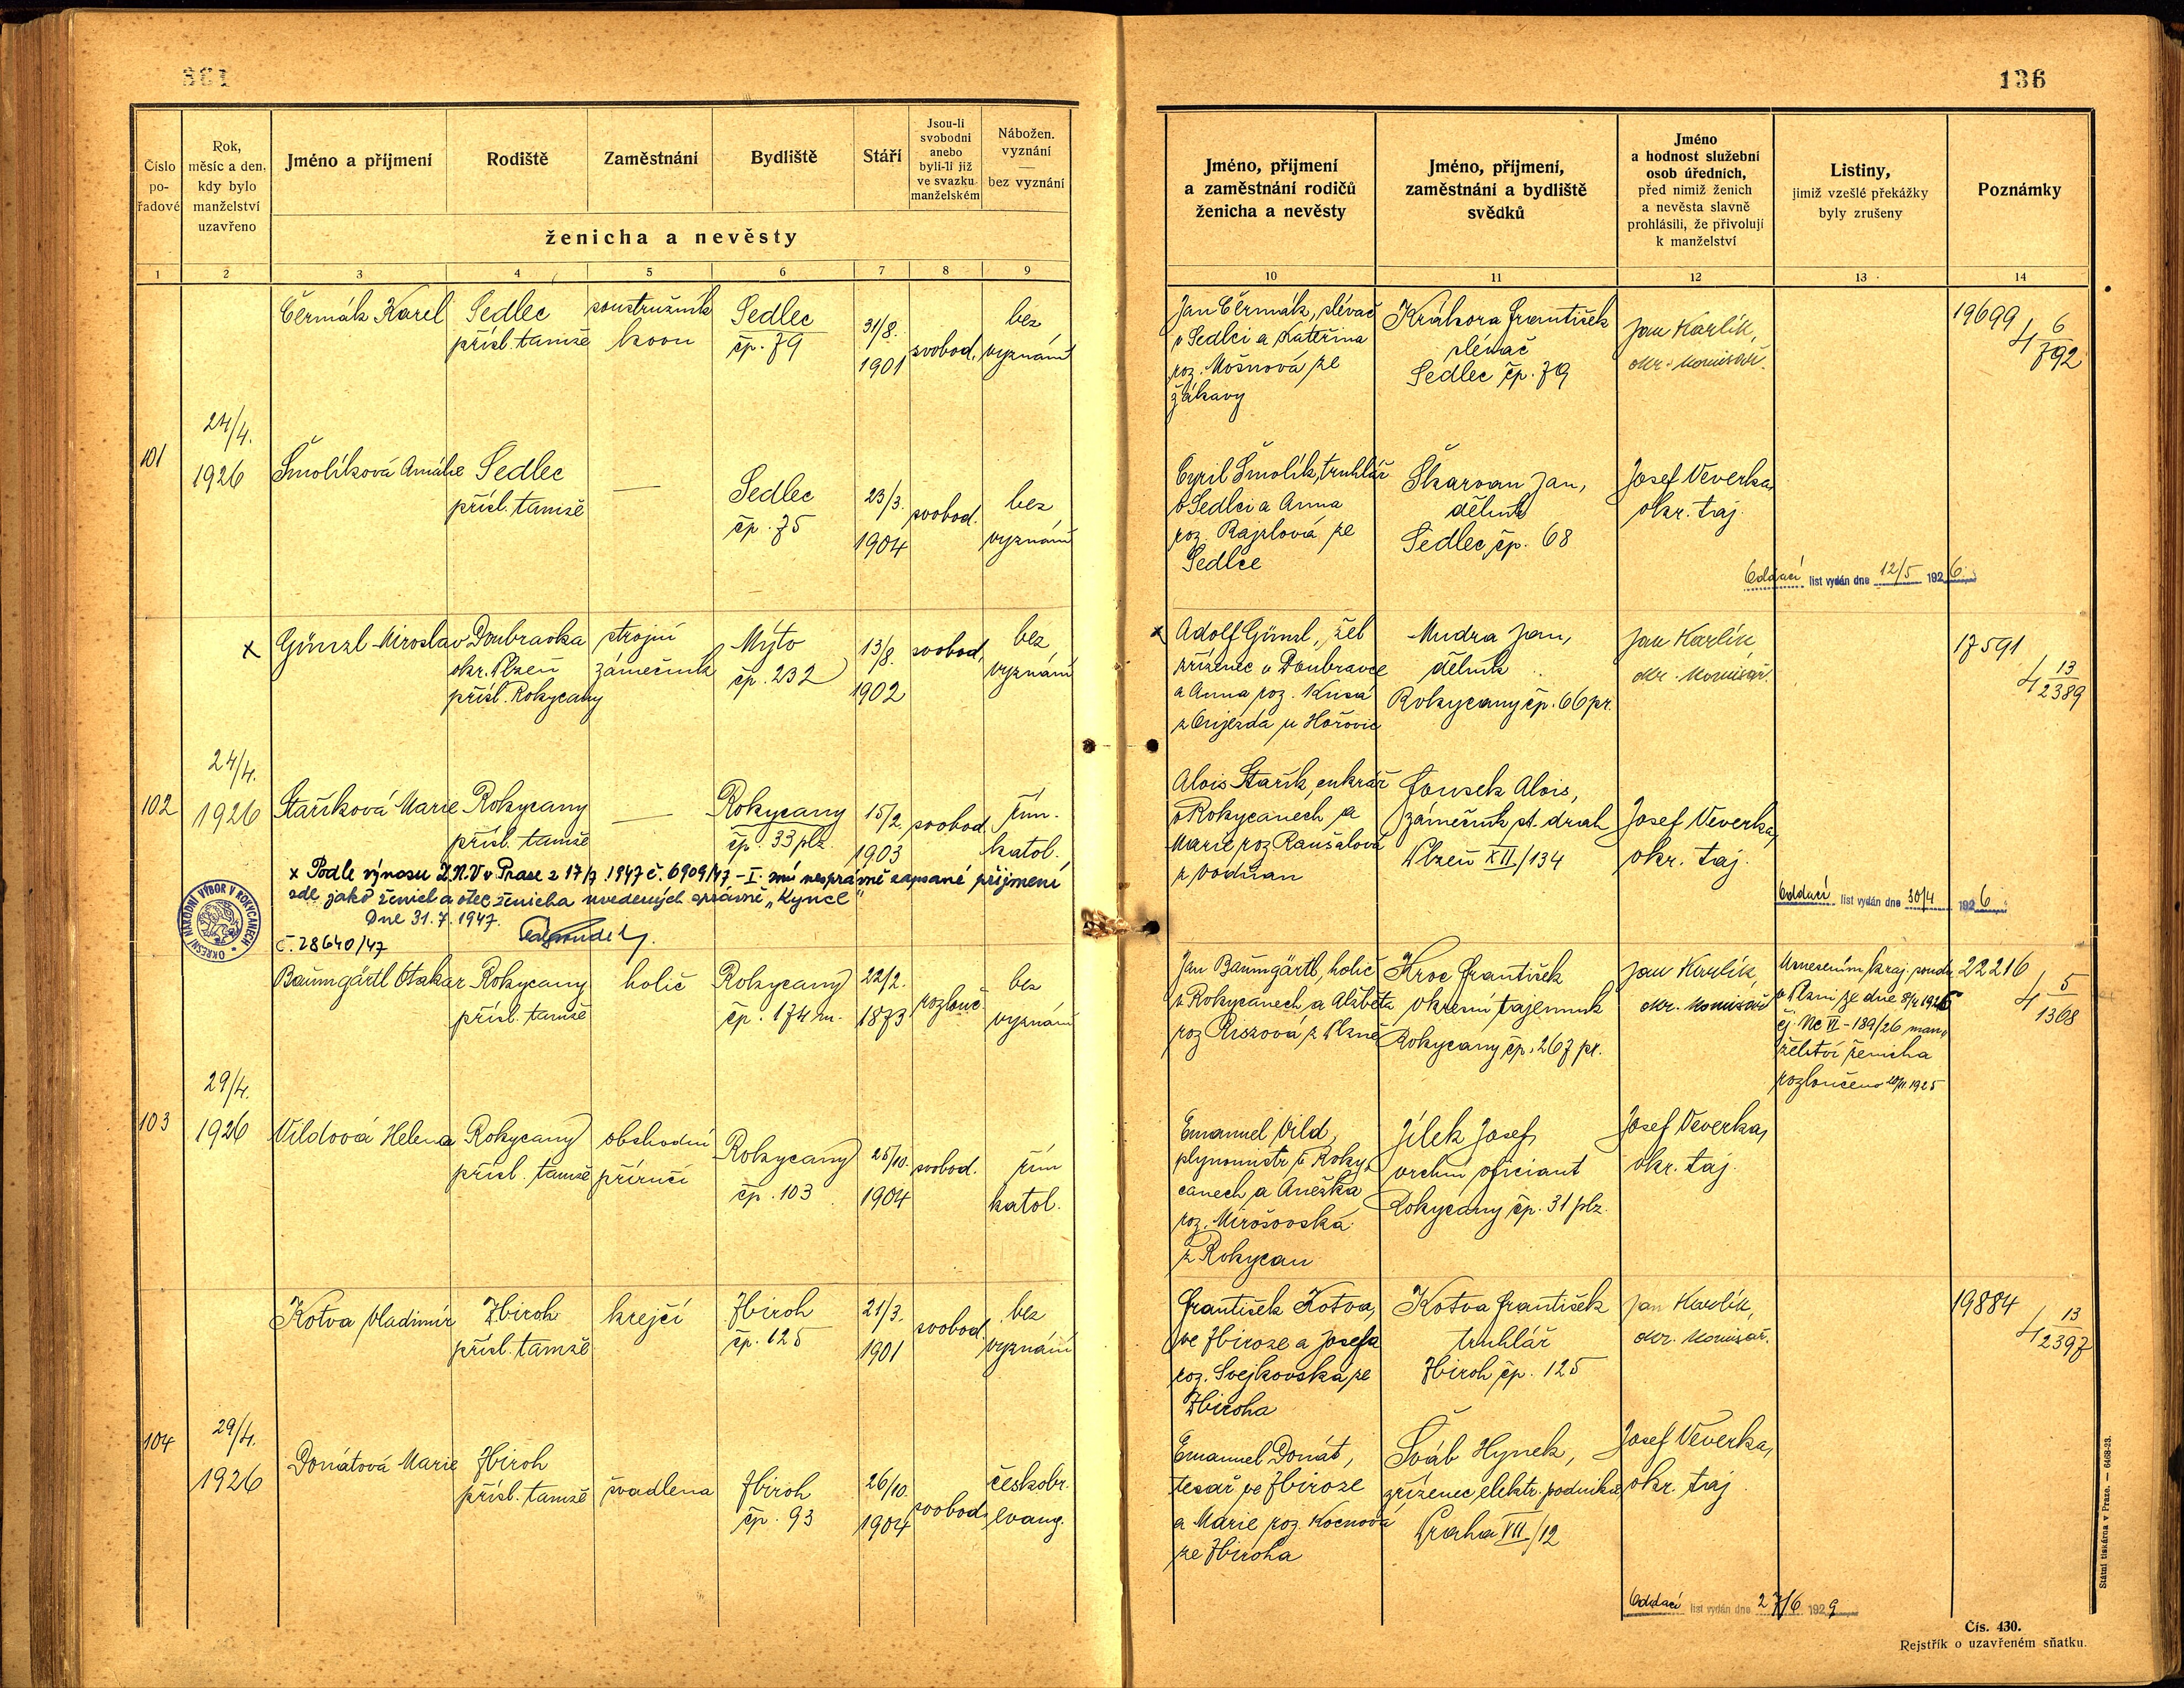 136
Číslo
po-
řadové
Rok,
měsíc a den,
kdy bylo
manželství
uzavřeno
Jméno a příjmení
Rodiště
Zaměstnání
Bydliště
Stáří
Jsou-li
svobodni
anebo
byli-li již
ve svazku
manželském
Nábožen.
vyznání
—
bez vyznání
ženicha a nevěsty
1 2 3 4 5 6 7 8 9
Jméno, příjmení
a zaměstnání rodičů
ženicha a nevěsty
Jméno, příjmení,
zaměstnání a bydliště
svědků
Jméno
a hodnost služební
osob úředních,
před nimiž ženich
a nevěsta slavně
prohlásili, že přivolují
k manželství
Listiny,
jimiž vzešlé překážky
byly zrušeny
Poznámky
10 11 12 13 14
101
24/4.
1926
Čermák Karel
Sedlec
přísl. tamže
soustružník
kovu
Sedlec
čp. 79
31/8.
1901
svobod.
bez
vyznání
Jan Čermák, slévač
v Sedlci a Kateřina
roz. Mošnová ze
Žákavy
Krákora František
slévač
Sedlec čp. 79
Jan Karlík,
okr. komisař.
19699
4 6/792
Šmolíková Amálie
Sedlec
přísl. tamže
—
Sedlec
čp. 75
23/3.
1904
svobod.
bez
vyznání
Cyril Šmolík, truhlář
v Sedlci a Anna
roz. Rajzlová ze
Sedlce
Škarvan Jan,
dělník
Sedlec čp. 68
Josef Veverka,
okr. taj.
Oddací list vydán dne 12/5 1926
102
24/4.
1926
x Günzl Miroslav
Doubravka
okr. Plzeň
přísl. Rokycany
strojní
zámečník
Mýto
čp. 232
13/8.
1902
svobod.
bez
vyznání
x Adolf Günzl, žel
zřízenec v Doubravce
a Anna roz. Kusá
z Ovjezda u Hořovic
Mudra Jan,
dělník
Rokycany čp. 66 pr.
Jan Karlík
okr. komisař.
17591
4 13/2389
Staříková Marie
Rokycany
přísl. tamže
—
Rokycany
čp. 33 plz.
15/2.
1903
svobod.
řím.
katol.
Alois Stařík, cukrář
v Rokycanech a
Marie roz Raušalová
z Vodňan
Fousek Alois,
zámečník st. drah
Plzeň XII/134
Josef Veverka,
okr. taj.
x Podle výnosu Z.N.V v Praze z 17/7 1947 č. 6909/47 – I. zní nesprávně zapsané příjmení
zde jako ženich a otec ženicha uvedených správně „Kyncl“
Dne 31. 7. 1947.
č. 28640/47
OKRESNÍ NÁRODNÍ VÝBOR V ROKYCANECH
Oddací list vydán dne 30/4 1926
103
29/4.
1926
Baumgärtl Otakar
Rokycany
přísl. tamže
holič
Rokycany
čp. 174 m.
22/2.
1873
rozlouč.
bez
vyznání
Jan Baumgärtl, holič
v Rokycanech a Alžběta
roz Riszová z Plzně
Kroc František
okresní tajemník
Rokycany čp. 267 pr.
Jan Karlík,
okr. komisař
Usnesením kraj. soudu
v Plzni ze dne 8/4 1926
čj. Nc VI – 189/26 man-
želství ženicha
rozloučeno 1925
22216
4 5/1368
Vildová Helena
Rokycany
přísl. tamže
obchodní
příručí
Rokycany
čp. 103
25/10.
1904
svobod.
řím
katol.
Emanuel Vild,
plynomistr v Roky-
canech a Anežka
roz. Mirošovská
z Rokycan
Jílek Josef,
vrchní oficiant
Rokycany čp. 31 plz.
Josef Veverka,
okr. taj.
104
29/4.
1926
Kotva Vladimír
Zbiroh
přísl. tamže
krejčí
Zbiroh
čp. 125
21/3.
1901
svobod.
bez
vyznání
František Kotva,
ve Zbiroze a Josefa
roz. Svejkovská ze
Zbiroha
Kotva František
truhlář
Zbiroh čp. 125
Jan Karlík,
okr. komisař.
19884
4 13/2397
Donátová Marie
Zbiroh
přísl. tamže
švadlena
Zbiroh
čp. 93
26/10.
1904
svobod.
českobr.
evang.
Emanuel Donát,
tesař ve Zbiroze
a Marie roz. Kocnová
ze Zbiroha
Šváb Hynek,
zřízenec elektr. podniků
Praha VII/12
Josef Veverka,
okr. taj.
Oddací list vydán dne 27/6 1929
Čís. 430.
Rejstřík o uzavřeném sňatku.
Státní tiskárna v Praze. — 6468-23.